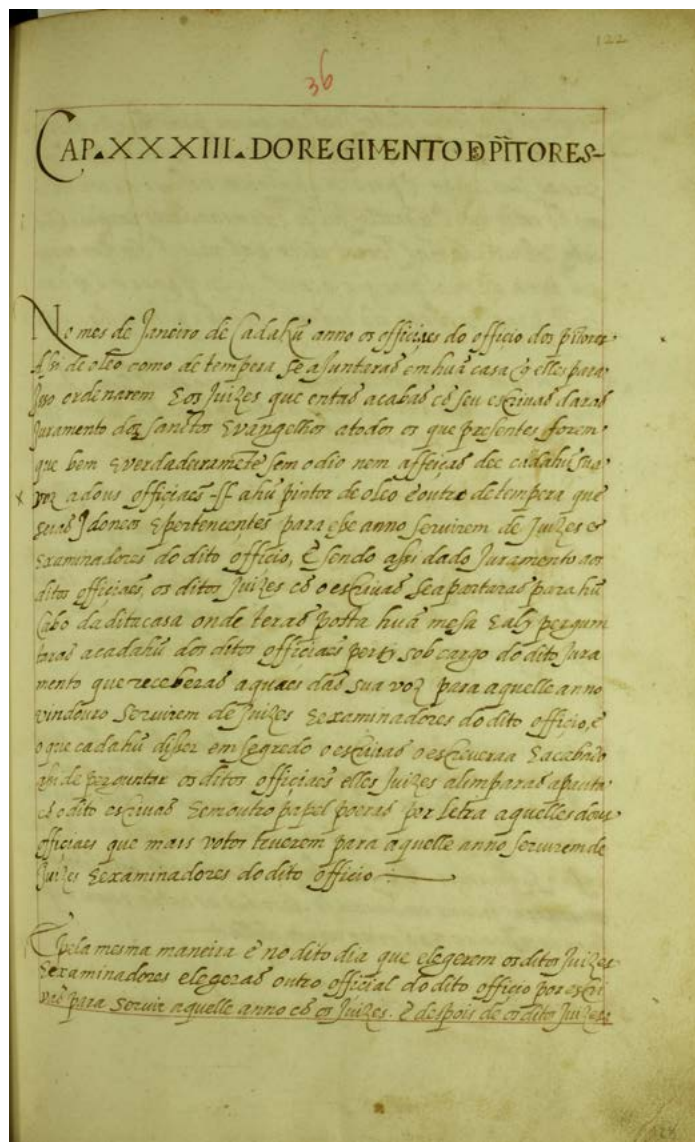 122
36
CAP. XXXIII. DO REGIMENTO D PĨTORES
No mes de Janeiro de Cadahũ anno os officiaes do officio dos pĩtores
Assi de oleo como de tempera se ajuntarão em huã casa q̃ elles para
Isso ordenarem E os Juizes que então acabão cõ seu escrivão darão
Juramento dos sanctos Evangelhos a todos os que presentes forem
que bem E verdadeiramẽte sem odio nem affeição dee cadahũ sua
voz a dous officiaes -ss- a hũ pintor de oleo e outro de tempera que
sejão Idoneos E pertencentes para esse anno servirem de Juizes e
Examinadores do dito officio, E sendo assi dado Juramento aos
ditos officiaes, os ditos Juizes cõ o escrivão se apartarão para hũ
Cabo da dita casa onde terão posta huã mesa E aly pergun
tarão a cadahũ dos ditos officiaes per sy sob cargo do dito Jura
mento que receberão a quaes dão sua voz para aquelle anno
vindouro servirem de Juizes E examinadores do dito officio, e
o que cadahũ disser em segredo o escrivão o escreveraa E acabado
assi de perguntar os ditos officiaes elles Juizes alimparão a pauta
cõ o dito escrivão E em outro papel poerão por letra aquelles dous
officiaes que mais votos tiverem para aquelle anno servirem de
Juizes E examinadores do dito officio
E pela mesma maneira e no dito dia que elegerem os ditos Juizes
E examinadores elegerão outro official do dito officio por escri
vão para servir aquelle anno cõ os Juizes. E despois de os ditos Juizes